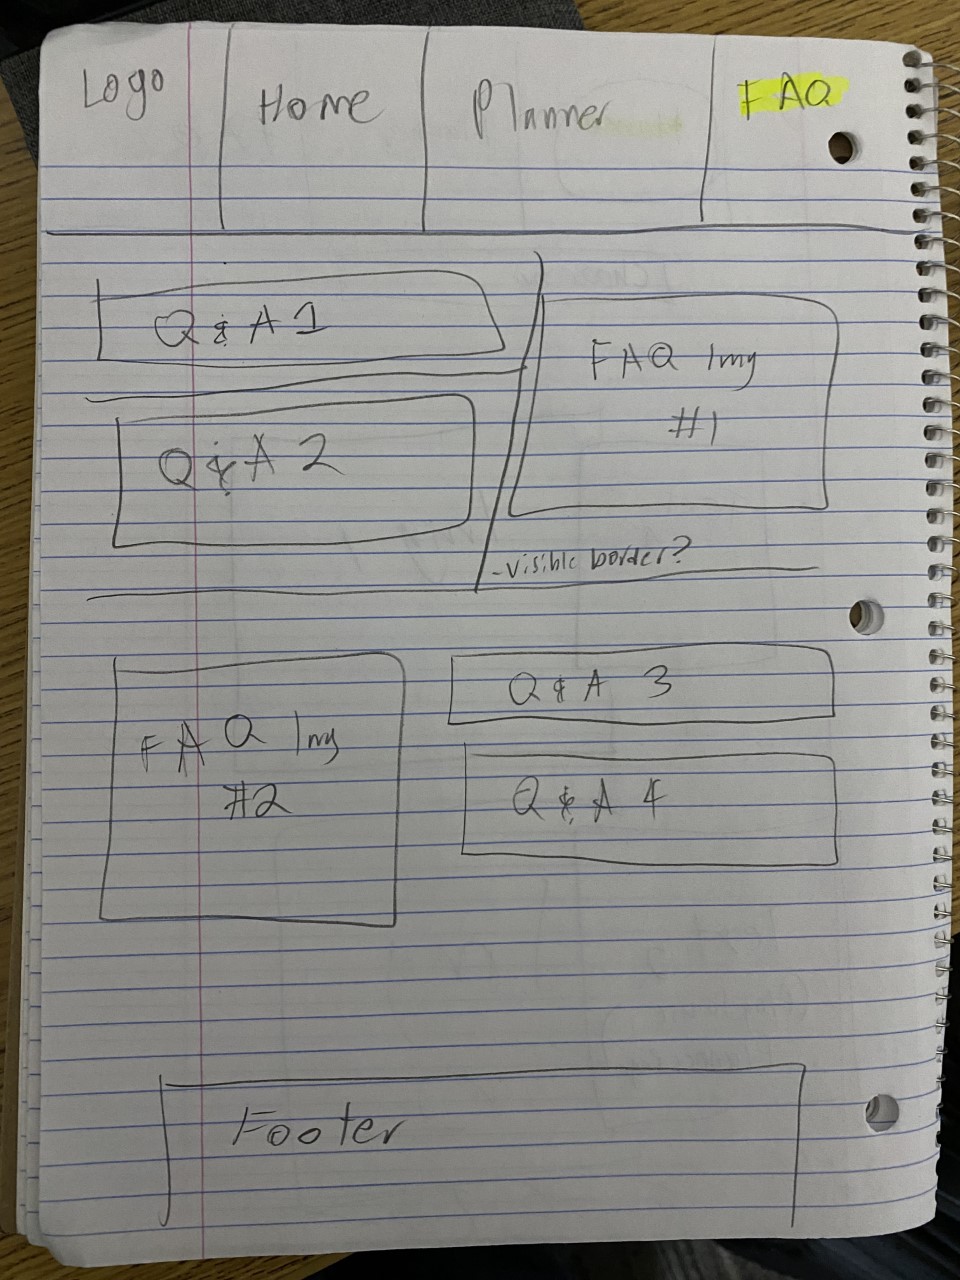 Logo
Home
Planner
FAQ
Q & A 1
FAQ Img
#1
Q & A 2
-visible border?
FAQ Img
#2
Q & A 3
Q & A 4
Footer